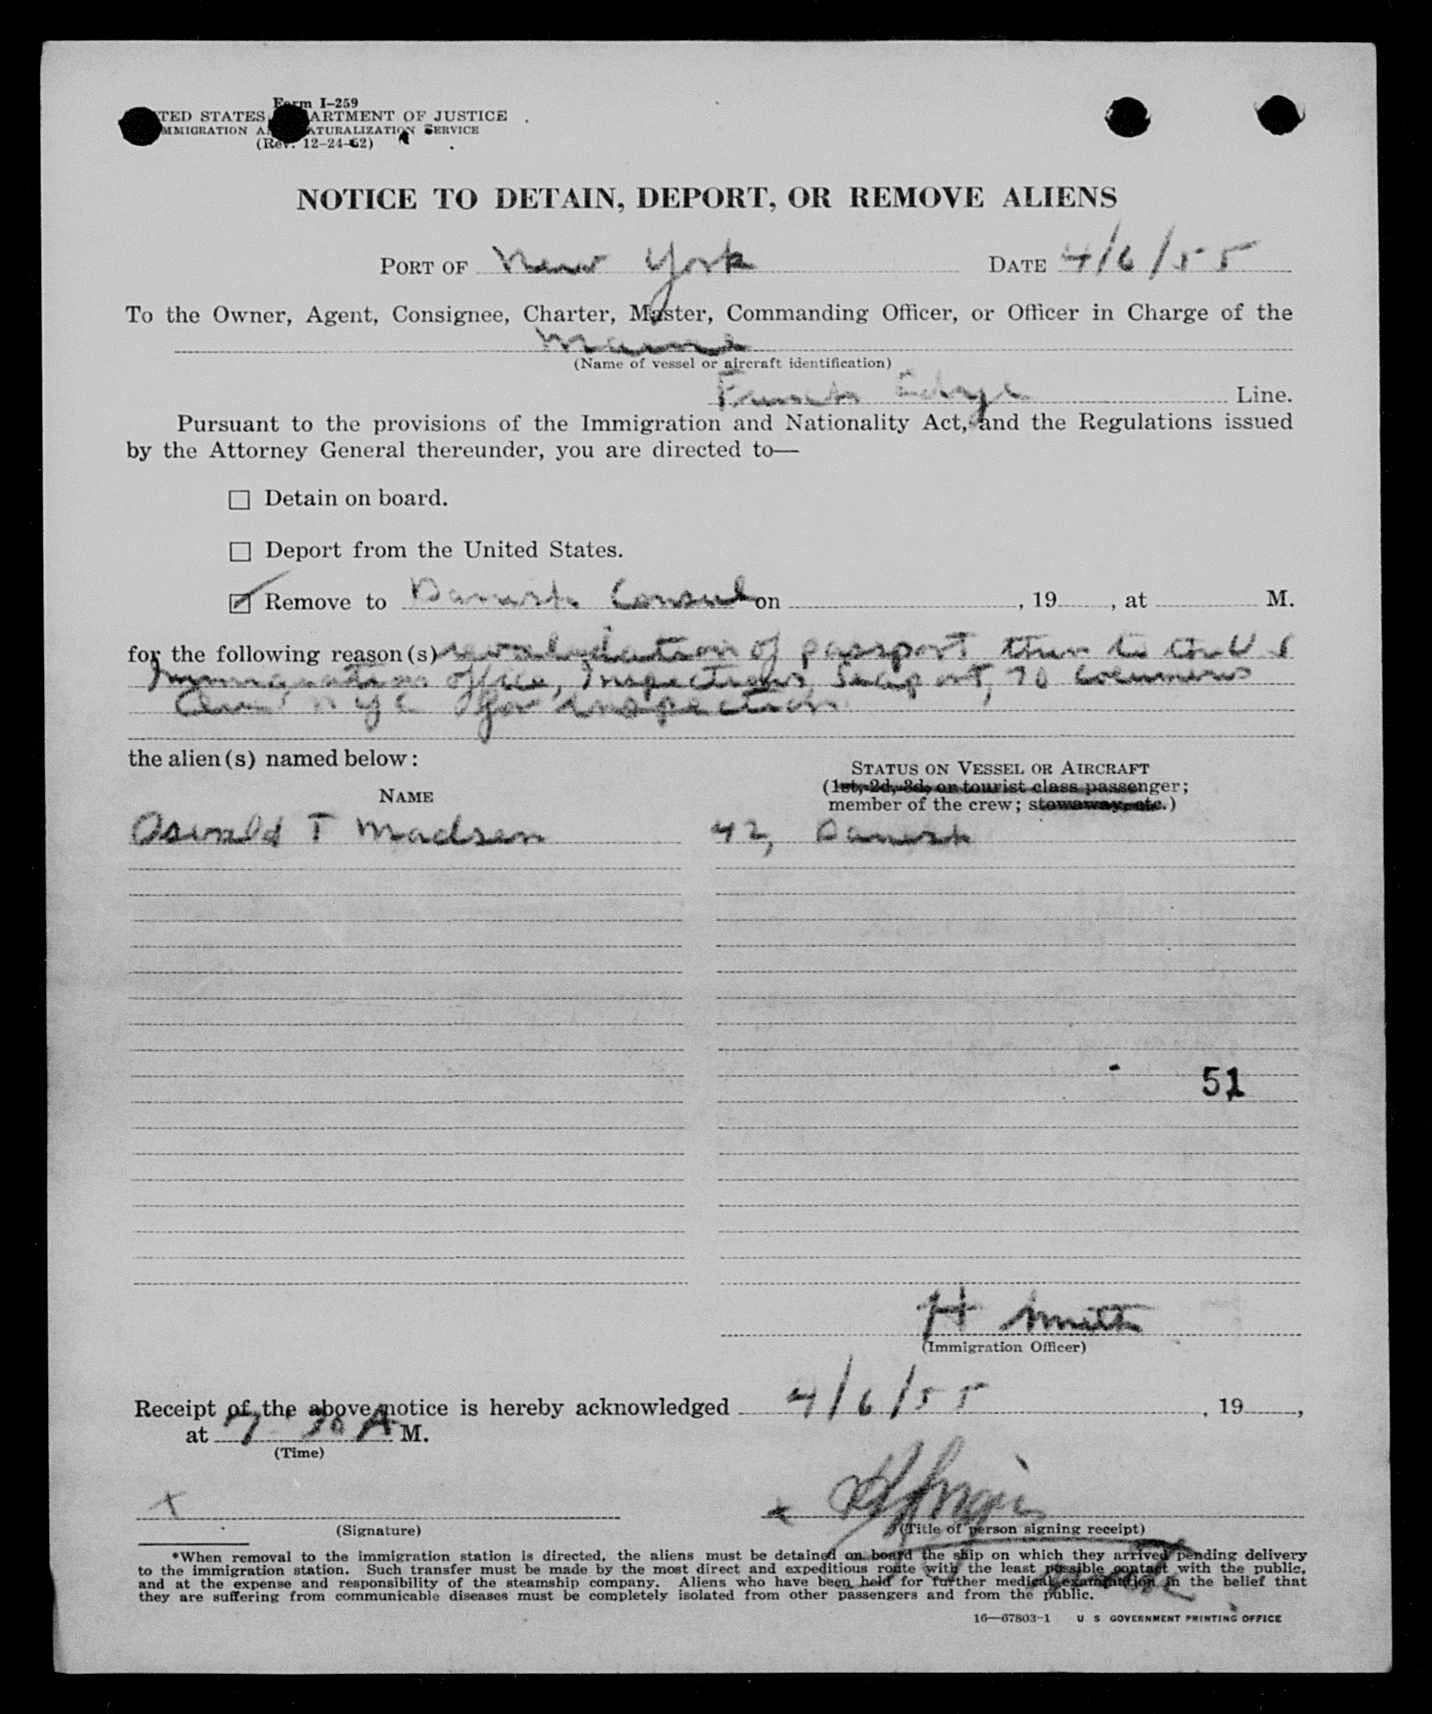 Form I-259
TED STATES ARTMENT OF JUSTICE
MMIGRATION A ATURALIZATION SERVICE
(Rev. 12-24-52)
NOTICE TO DETAIN, DEPORT, OR REMOVE ALIENS
PORT OF New York DATE 4/6/55
To the Owner, Agent, Consignee, Charter, Master, Commanding Officer, or Officer in Charge of the
(Name of vessel or aircraft identification)
Funch Edye Line.
Pursuant to the provisions of the Immigration and Nationality Act, and the Regulations issued
by the Attorney General thereunder, you are directed to—
☐ Detain on board.
☐ Deport from the United States.
☑ Remove to Danish Consul on , 19 , at M.
for the following reason(s) revalidation of passport then to U S
Immigration office, Inspections, Seaport, 70 Columbus
Ave N Y C for inspection
the alien(s) named below:
STATUS ON VESSEL OR AIRCRAFT
(1st, 2d, 3d, or tourist class passenger;
NAME
member of the crew; stowaway, etc.)
Oswald T Madsen 42, Danish
51
H Smith
(Immigration Officer)
Receipt of the above notice is hereby acknowledged 4/6/55 , 19 ,
at 7 30 A M.
(Time)
x x
(Signature) (Title of person signing receipt)
*When removal to the immigration station is directed, the aliens must be detained on board the ship on which they arrived pending delivery
to the immigration station. Such transfer must be made by the most direct and expeditious route with the least possible contact with the public,
and at the expense and responsibility of the steamship company. Aliens who have been held for further medical examination in the belief that
they are suffering from communicable diseases must be completely isolated from other passengers and from the public.
16—67803-1 U S GOVERNMENT PRINTING OFFICE